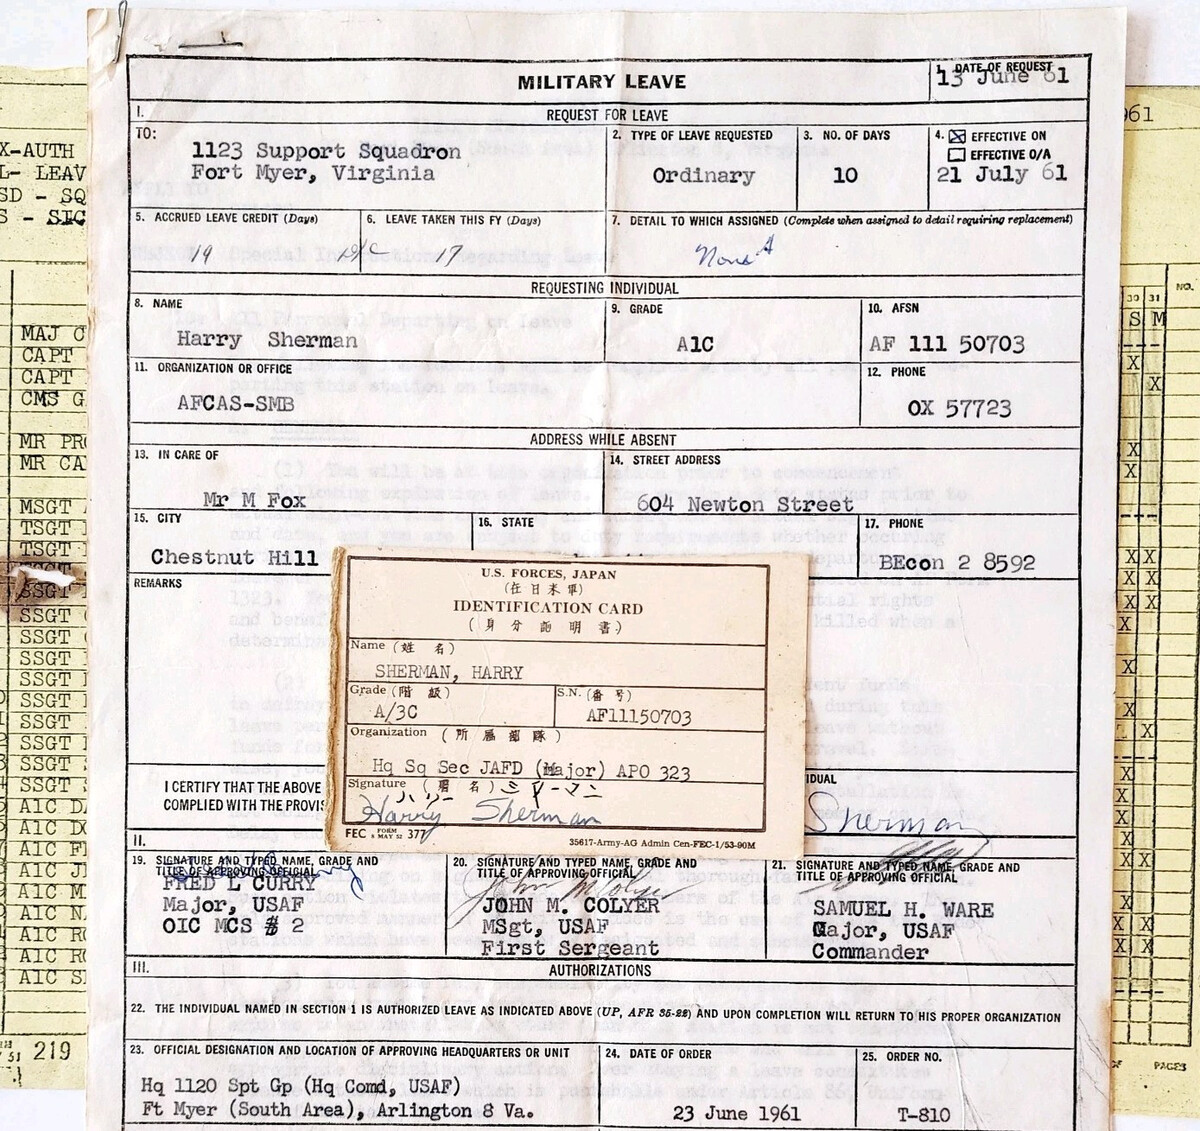 MILITARY LEAVE
1. DATE OF REQUEST
13 June 61
I.
REQUEST FOR LEAVE
TO:
1123 Support Squadron
Fort Myer, Virginia
2. TYPE OF LEAVE REQUESTED
Ordinary
3. NO. OF DAYS
10
4. ☒ EFFECTIVE ON
☐ EFFECTIVE O/A
21 July 61
5. ACCRUED LEAVE CREDIT (Days)
19
6. LEAVE TAKEN THIS FY (Days)
17
7. DETAIL TO WHICH ASSIGNED (Complete when assigned to detail requiring replacement)
None
REQUESTING INDIVIDUAL
8. NAME
Harry Sherman
9. GRADE
A1C
10. AFSN
AF 111 50703
11. ORGANIZATION OR OFFICE
AFCAS-SMB
12. PHONE
OX 57723
ADDRESS WHILE ABSENT
13. IN CARE OF
Mr M Fox
14. STREET ADDRESS
604 Newton Street
15. CITY
Chestnut Hill
16. STATE
17. PHONE
BEcon 2 8592
REMARKS
U.S. FORCES, JAPAN
(在日米軍)
IDENTIFICATION CARD
(身分証明書)
Name (姓名)
SHERMAN, HARRY
Grade (階級)
A/3C
S.N. (番号)
AF11150703
Organization (所属部隊)
Hq Sq Sec JAFD (Major) APO 323
Signature (署名)
ハリー シャーマン
Harry Sherman
FEC FORM 8 MAY 52 377
35617-Army-AG Admin Cen-FEC-1/53-90M
I CERTIFY THAT THE ABOVE
COMPLIED WITH THE PROVIS
IDUAL
Sherman
II.
19. SIGNATURE AND TYPED NAME, GRADE AND
TITLE OF APPROVING OFFICIAL
FRED L CURRY
Major, USAF
OIC MCS # 2
20. SIGNATURE AND TYPED NAME, GRADE AND
TITLE OF APPROVING OFFICIAL
John M Colyer
JOHN M. COLYER
MSgt, USAF
First Sergeant
21. SIGNATURE AND TYPED NAME, GRADE AND
TITLE OF APPROVING OFFICIAL
SAMUEL H. WARE
Major, USAF
Commander
III.
AUTHORIZATIONS
22. THE INDIVIDUAL NAMED IN SECTION 1 IS AUTHORIZED LEAVE AS INDICATED ABOVE (UP, AFR 35-22) AND UPON COMPLETION WILL RETURN TO HIS PROPER ORGANIZATION
23. OFFICIAL DESIGNATION AND LOCATION OF APPROVING HEADQUARTERS OR UNIT
Hq 1120 Spt Gp (Hq Comd, USAF)
Ft Myer (South Area), Arlington 8 Va.
24. DATE OF ORDER
23 June 1961
25. ORDER NO.
T-810
X-AUTH
L- LEAV
SD - SQ
S - SIC
MAJ C
CAPT
CAPT
CMS G
MR PR
MR CA
MSGT
TSGT
TSGT
SSGT
SSGT
SSGT
SSGT
SSGT
SSGT
SSGT
SSGT
SSGT
SSGT
A1C D
A1C D
A1C F
A1C J
A1C M
A1C N
A1C R
A1C R
A1C S
51 219
961
30 31
NO.
S M
X
X
X
X
X X
X X
X X
X
X
X
X
X
X
X
X
X X
X
X X
X X
X
PAGES